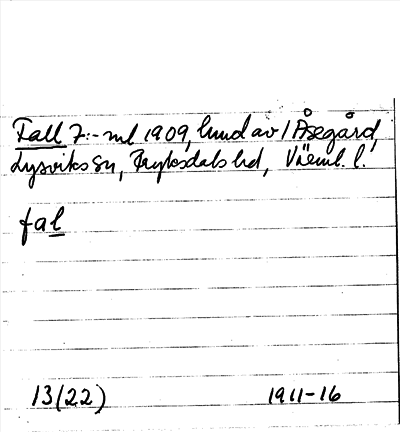 Fall 7:- ml 1909, lund av / Åsegård,
Lysviks sn, Fryksdals hd, Värml. l.
fal
13(22) 1911-16